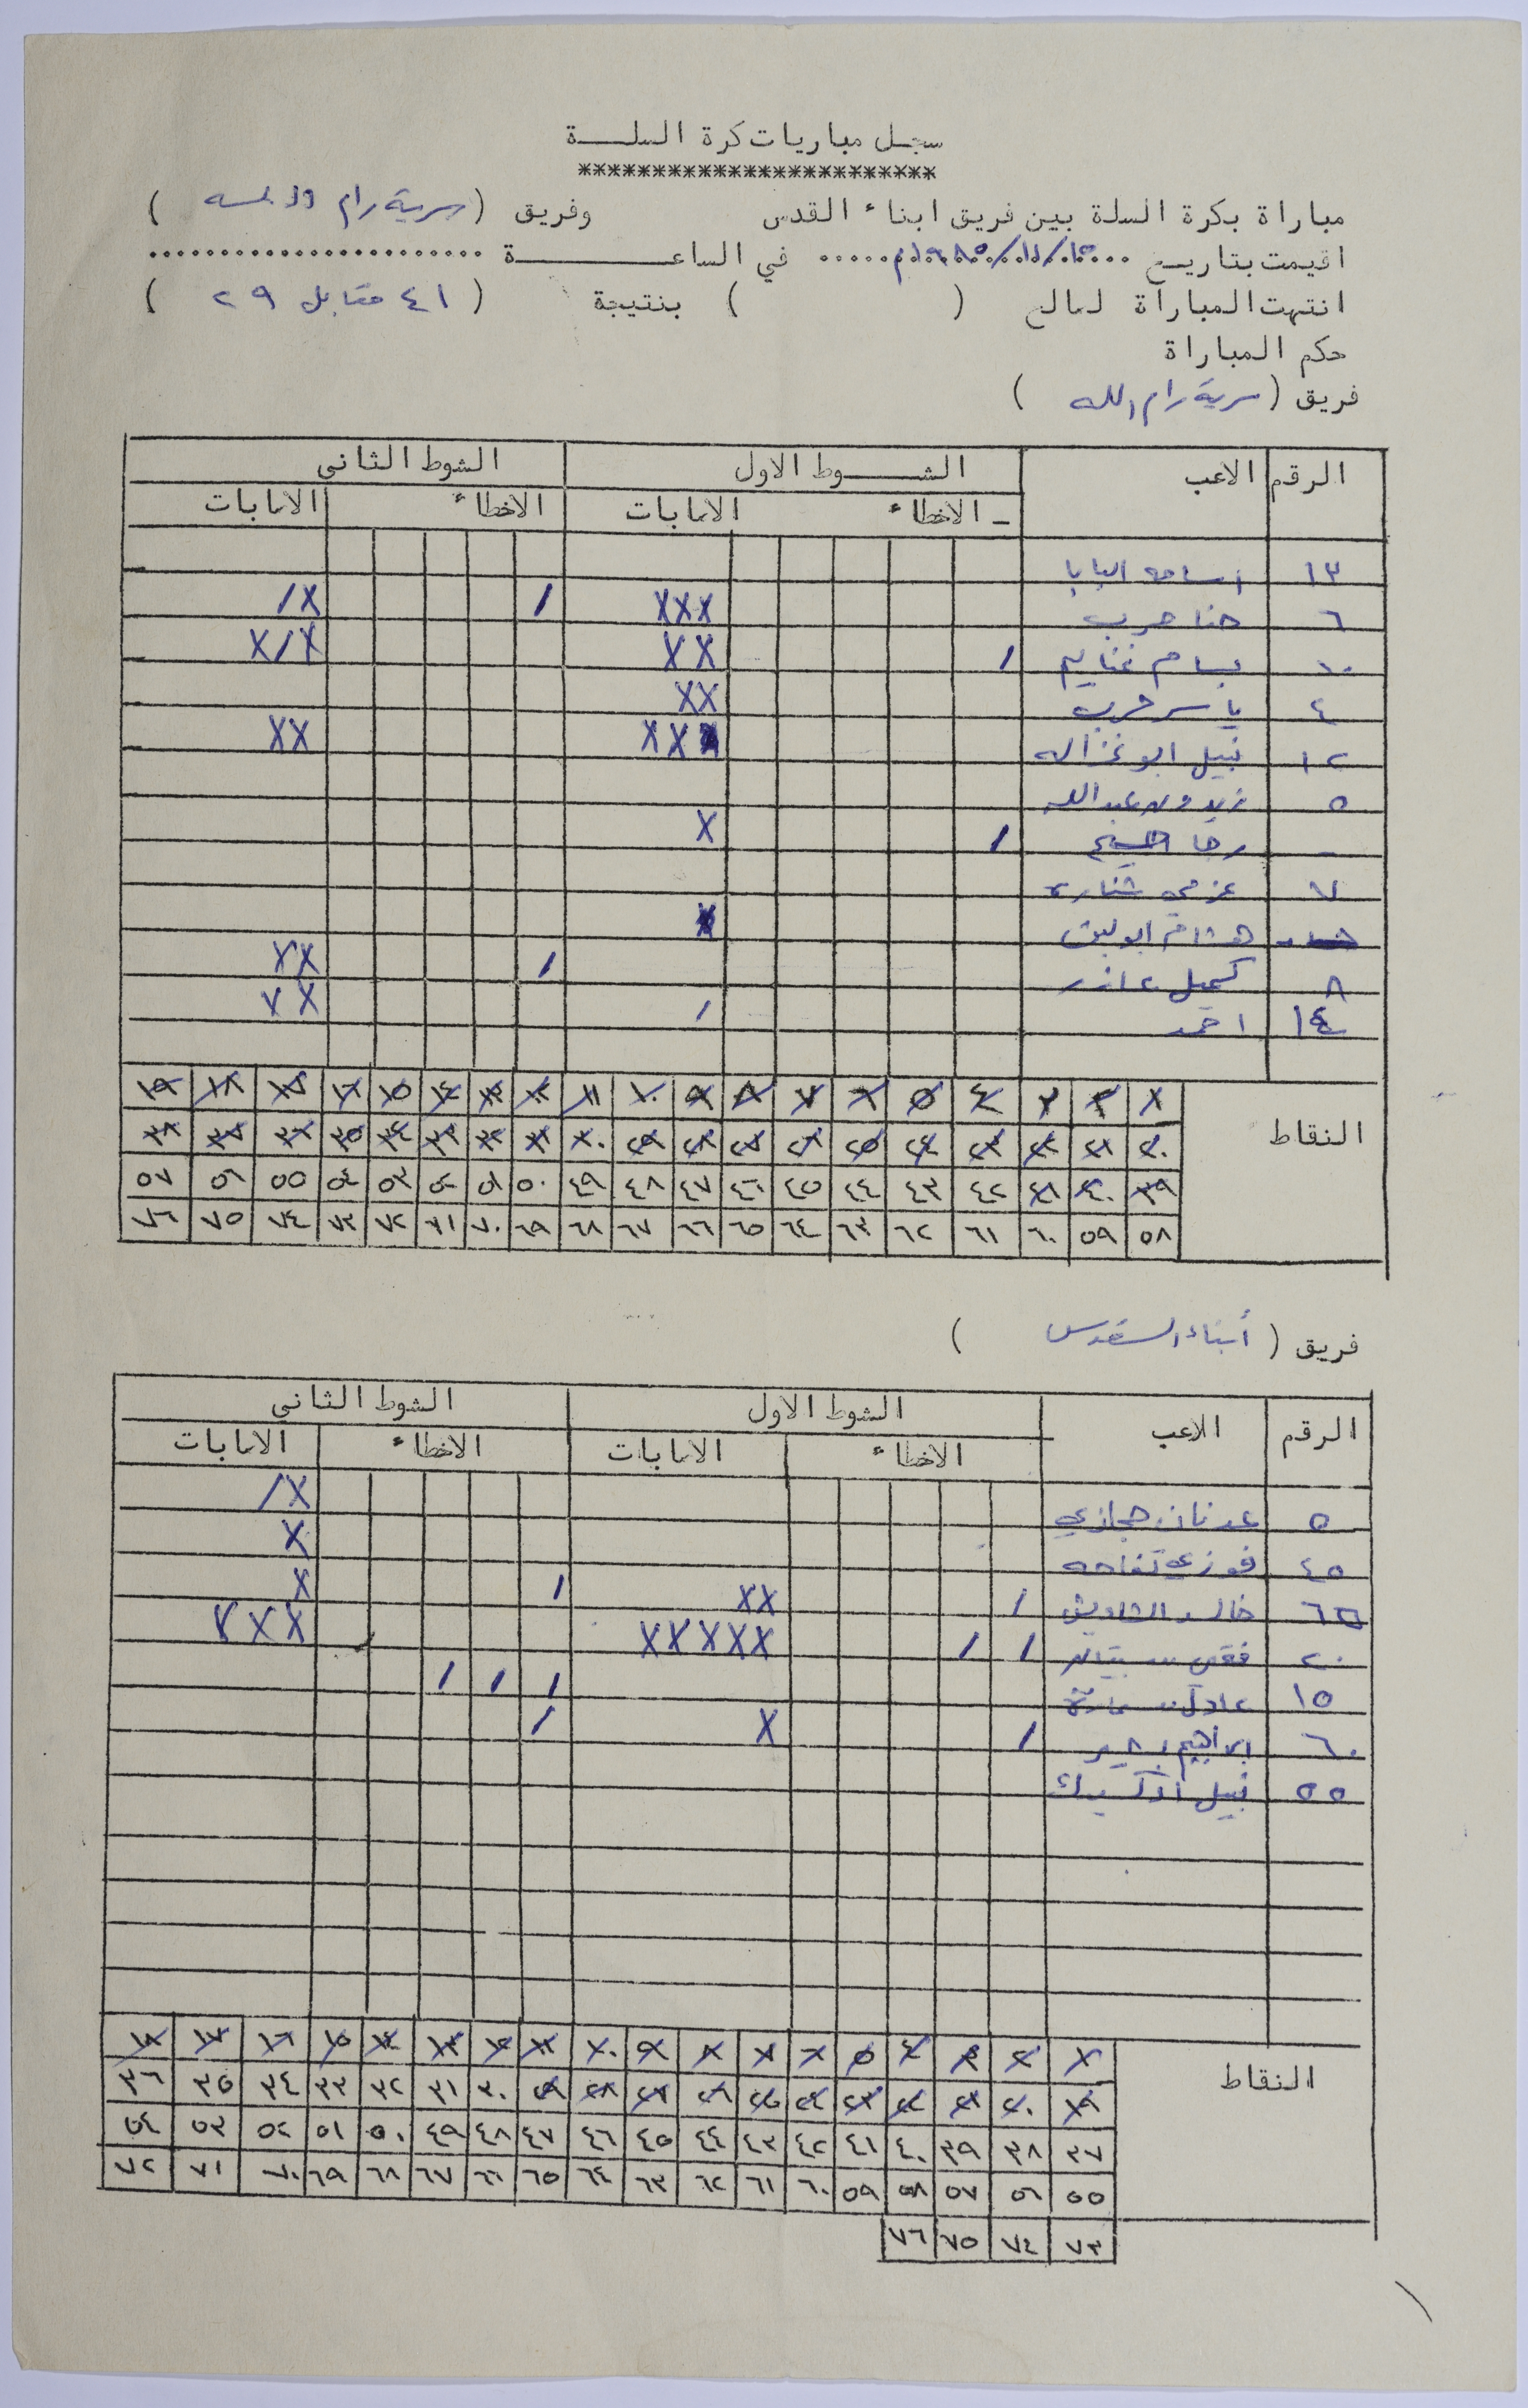 سجل مباريات كرة السلة
************************
مباراة بكرة السلة بين فريق ابناء القدس وفريق (سرية رام الله)
اقيمت بتاريخ ١٩٨٥/١١/١٥م في الساعة ......................
انتهت المباراة لصالح ( ) بنتيجة (٤١ مقابل ٢٩)
حكم المباراة
فريق (سرية رام الله)
الرقم الاعب الشوط الاول الشوط الثاني
الاخطاء الاصابات الاخطاء الاصابات
١٣ اسامه البابا
٦ حنا حرب XXX / X/
١٠ بسام غنايم / XX X/X
٤ ياسر حرب XX
١٢ نبيل ابو غزاله XX XX
٥ زيدون عبدالله
- رجا / X
٧ عزمي
هشام ابو
٨ كميل عازر / XX
١٤ احمد / XX
النقاط
١ ٢ ٣ ٤ ٥ ٦ ٧ ٨ ٩ ١٠ ١١ ١٢ ١٣ ١٤ ١٥ ١٦ ١٧ ١٨ ١٩
٢٠ ٢١ ٢٢ ٢٣ ٢٤ ٢٥ ٢٦ ٢٧ ٢٨ ٢٩ ٣٠ ٣١ ٣٢ ٣٣ ٣٤ ٣٥ ٣٦ ٣٧ ٣٨
٣٩ ٤٠ ٤١ ٤٢ ٤٣ ٤٤ ٤٥ ٤٦ ٤٧ ٤٨ ٤٩ ٥٠ ٥١ ٥٢ ٥٣ ٥٤ ٥٥ ٥٦ ٥٧
٥٨ ٥٩ ٦٠ ٦١ ٦٢ ٦٣ ٦٤ ٦٥ ٦٦ ٦٧ ٦٨ ٦٩ ٧٠ ٧١ ٧٢ ٧٣ ٧٤ ٧٥ ٧٦
فريق (أبناء القدس)
الرقم الاعب الشوط الاول الشوط الثاني
الاخطاء الاصابات الاخطاء الاصابات
٥ عدنان حجازي X/
٤٥ فوزي تفاحه X
٦٥ خالد الشاويش / XX / X
٢٠ / / XXXXX XXX
١٥ عادل / / /
٦٠ ابراهيم / X /
٥٥ نبيل
النقاط
١ ٢ ٣ ٤ ٥ ٦ ٧ ٨ ٩ ١٠ ١١ ١٢ ١٣ ١٤ ١٥ ١٦ ١٧ ١٨
١٩ ٢٠ ٢١ ٢٢ ٢٣ ٢٤ ٢٥ ٢٦ ٢٧ ٢٨ ٢٩ ٣٠ ٣١ ٣٢ ٣٣ ٣٤ ٣٥ ٣٦
٣٧ ٣٨ ٣٩ ٤٠ ٤١ ٤٢ ٤٣ ٤٤ ٤٥ ٤٦ ٤٧ ٤٨ ٤٩ ٥٠ ٥١ ٥٢ ٥٣ ٥٤
٥٥ ٥٦ ٥٧ ٥٨ ٥٩ ٦٠ ٦١ ٦٢ ٦٣ ٦٤ ٦٥ ٦٦ ٦٧ ٦٨ ٦٩ ٧٠ ٧١ ٧٢
٧٣ ٧٤ ٧٥ ٧٦